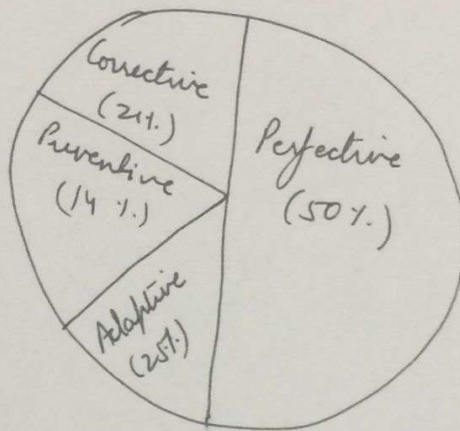 Corrective
(21%)
Preventive
(14 %)
Adaptive
(25%)
Perfective
(50%)